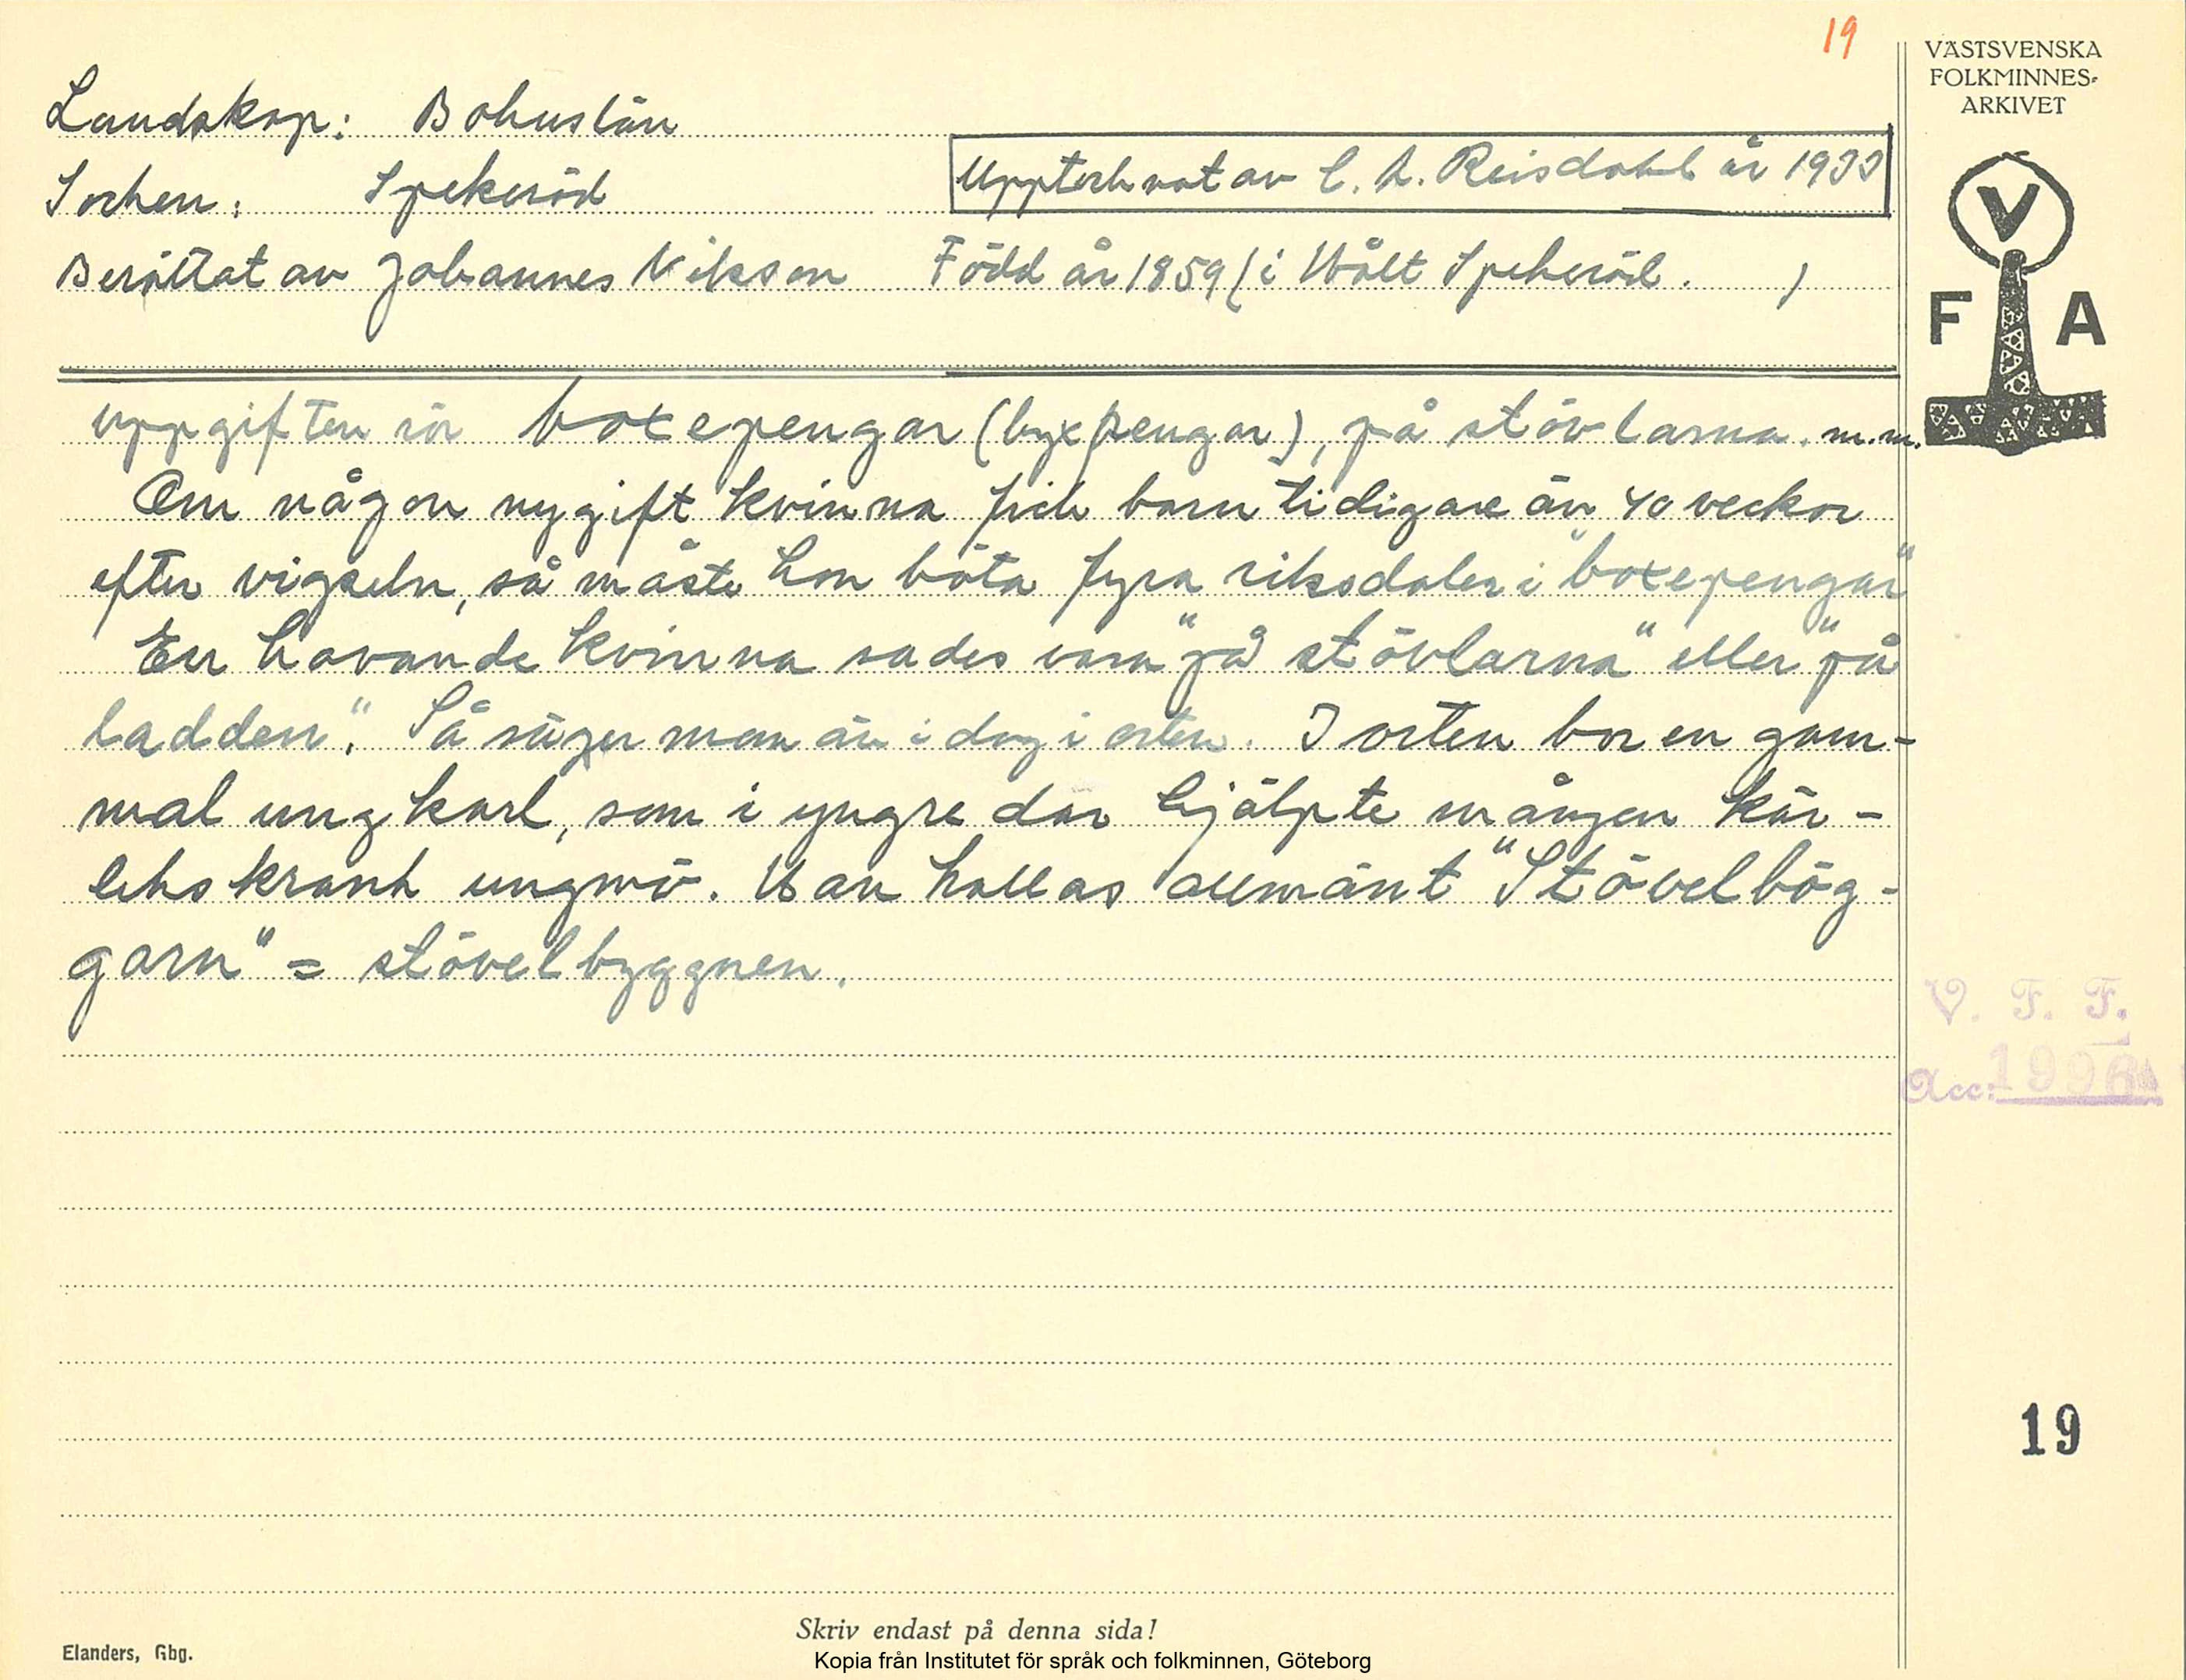 19
VÄSTSVENSKA
FOLKMINNES-
ARKIVET
Landskap: Bohuslän
Upptecknat av C. A. Reisdahl år 1933
Socken: Spekeröd
Berättat av Johannes Nilsson Född år 1859 (i Spekeröd. )
V
F A
Uppgiften rör boxepengar (byxpengar), på stövlarna. m.m.
Om någon nygift kvinna fick barn tidigare än 40 veckor
efter vigseln, så måste hon böta fyra riksdaler i "boxepengar"
En havande kvinna sades vara "på stövlarna" eller "på
ladden". Så säger man än i dag i orten. I orten bor en gam-
mal ungkarl, som i yngre dar hjälpte mången kär-
lekskrank ungmö. Han kallas allmänt "Stövelbög-
garn" = stövelbyggaren.
V. F. F.
Acc:
19
Skriv endast på denna sida!
Elanders, Gbg.
Kopia från Institutet för språk och folkminnen, Göteborg